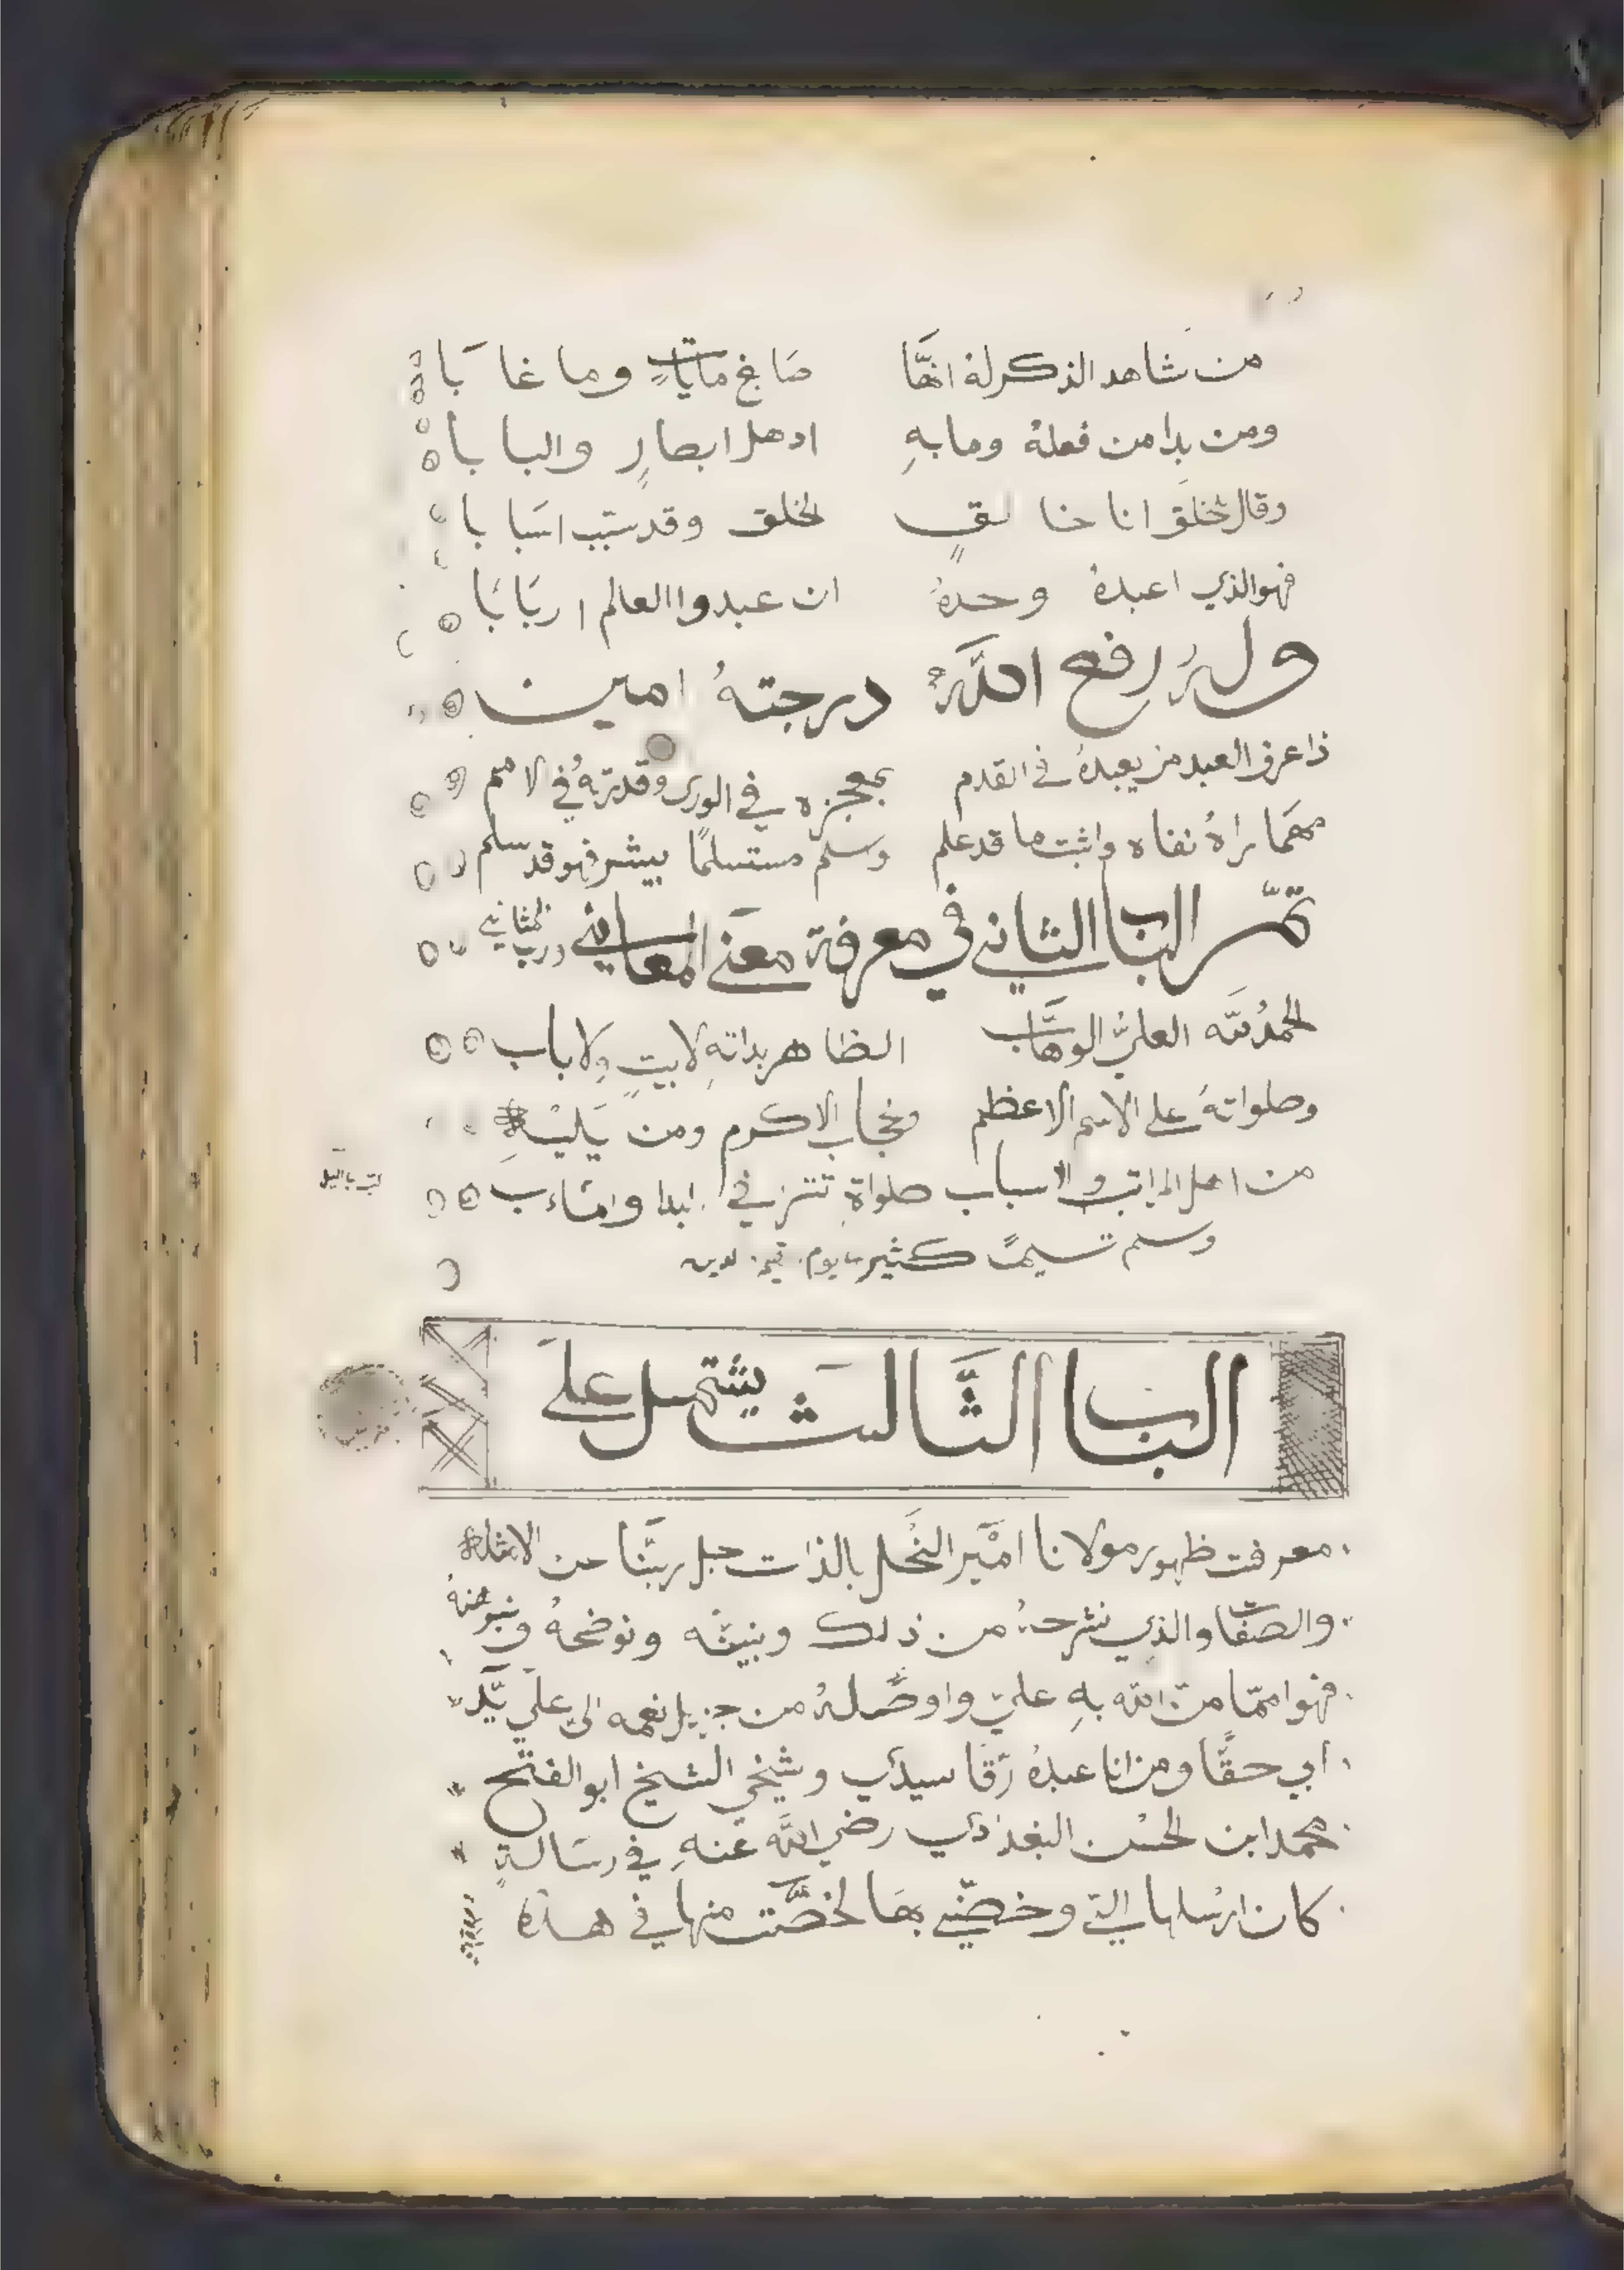 من شاهد الذكر له انهَّا صَا غ ماياتٍ وما غا بَا
ومن بدا من فعلهُ وما بهِ ادهل ابصارٍ والبا با
وقال لخلق انا خا لقٍ الخلق وقد سبّب اسَبا با
فهو الذي اعبدهُ وحدهُ ان عبدوا العالم اربَابَا
وله رفع اللَّهُ درجتهُ امين
ذا عرف العبد من يعبدهُ في القدم بمعجزه في الورى وقدرتهُ في الامم
مهمَا يراهُ نفاه واثبت ما قد علم وسلم مستسلمًا بيشر فهو قد سلم
تمّ الباب الثاني في معرفة معنَى المعاني
الحمدُ للَّه العليُّ الوهَّاب الظاهر بداتهِ لا بيتٍ ولا باب
وصلواتهُ على الاسم الاعظم وحجاب الاكرم ومن يَليْهِ
من اهل المراتب والاسباب صلواة تترا في ابدا
وسلم تسليمًا كثير
الباب الثَّالث يشتمل علَى
معرفت ظهور مولانا اميْر النحَل بالذات جل ربَّنا عن
والصفات والذي نشرحهُ من ذلك ونبيثَّه ونوضحهُ
فهوا ممّا منّ اللَّه بهِ عليّ واوصَّلهُ من جزيل نعمه الى علَى يَّد
ابي حقًّا ومن انا عبدهُ رَقًا سيدي وشيخي الشيخ ابو الفتح
محمد ابن الحسْن البغدادي رضي اللَّه عَنهِ في رسَالةٍ
كان ارسْلها اليّ وخصّني بهَا لخصَّت منها في هذه